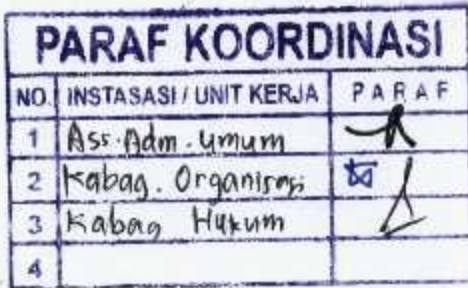 PARAF KOORDINASI
NO. INSTASASI / UNIT KERJA PARAF
1 Ass. Adm. Umum
2 Kabag. Organisasi
3 Kabag Hukum
4